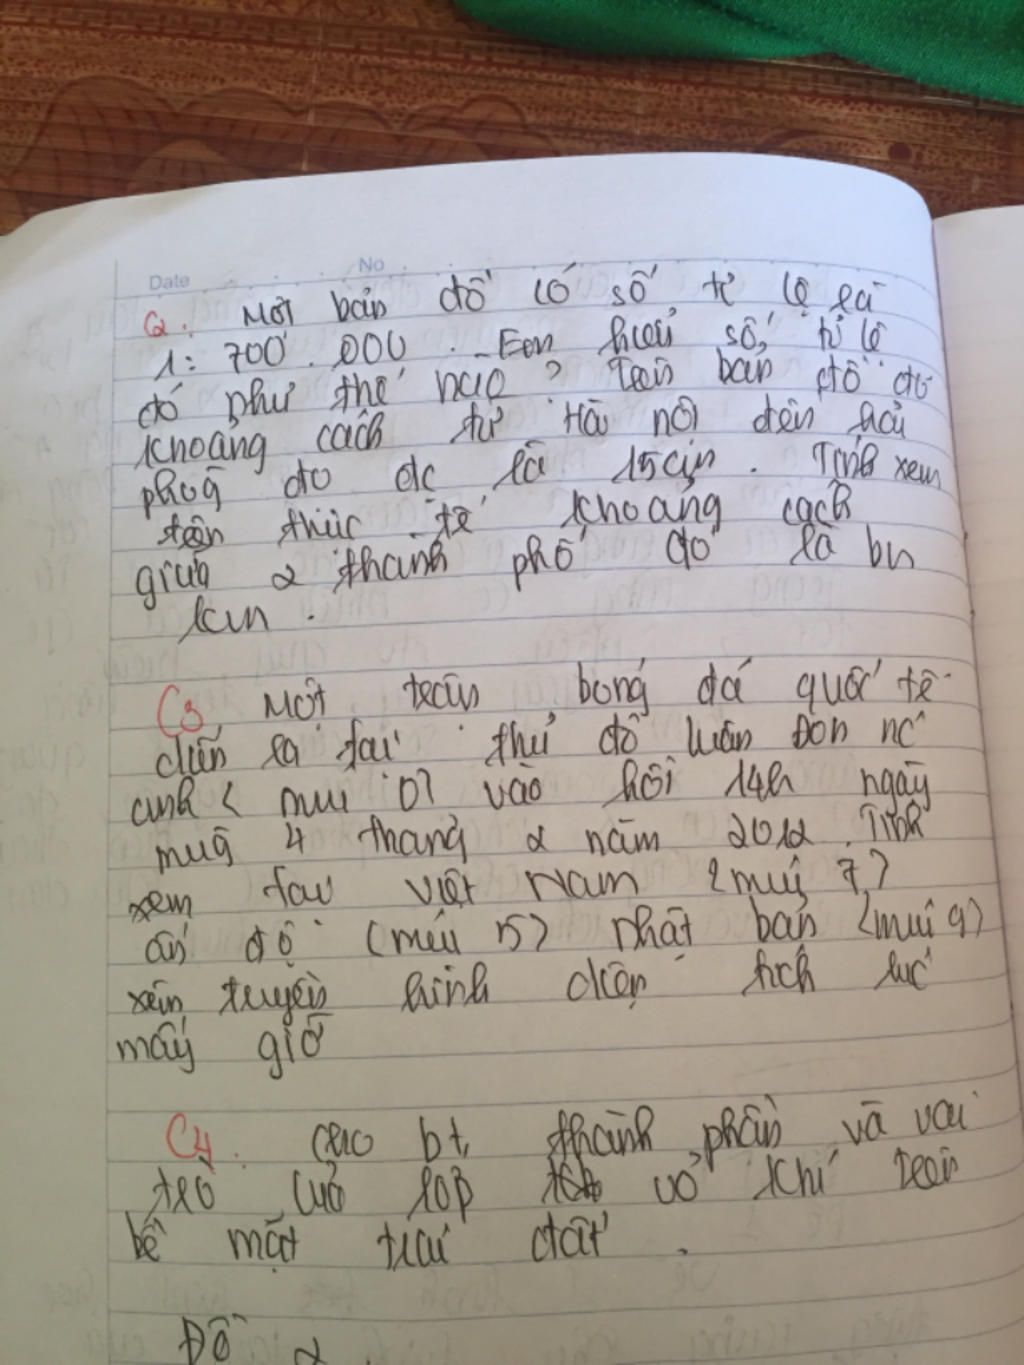 Date No
C2. Một bản đồ có số tỉ lệ là
1: 700.000. Em hiểu số tỉ lệ
đó như thế nào? Trên bản đồ đó
khoảng cách từ Hà nội đến hải
phòg đo đc là 15cm. Tính xem
trên thực tế khoảng cách
giữa 2 thành phố đó là bn
km.
C3. Một trận bóng đá quốc tế
diễn ra tại thủ đô luân Đôn nc
anh (múi 0) vào hồi 14h ngày
mùg 4 tháng 2 năm 2012. Tính
xem tại Việt Nam (múi 7)
ấn độ (múi 5) nhật bản (múi 9)
xem truyền hình lúc
mấy giờ
C4. cho bt, thành phần và vai
trò của lớp vỏ khí trên
bề mặt trái đất.
Đề 2